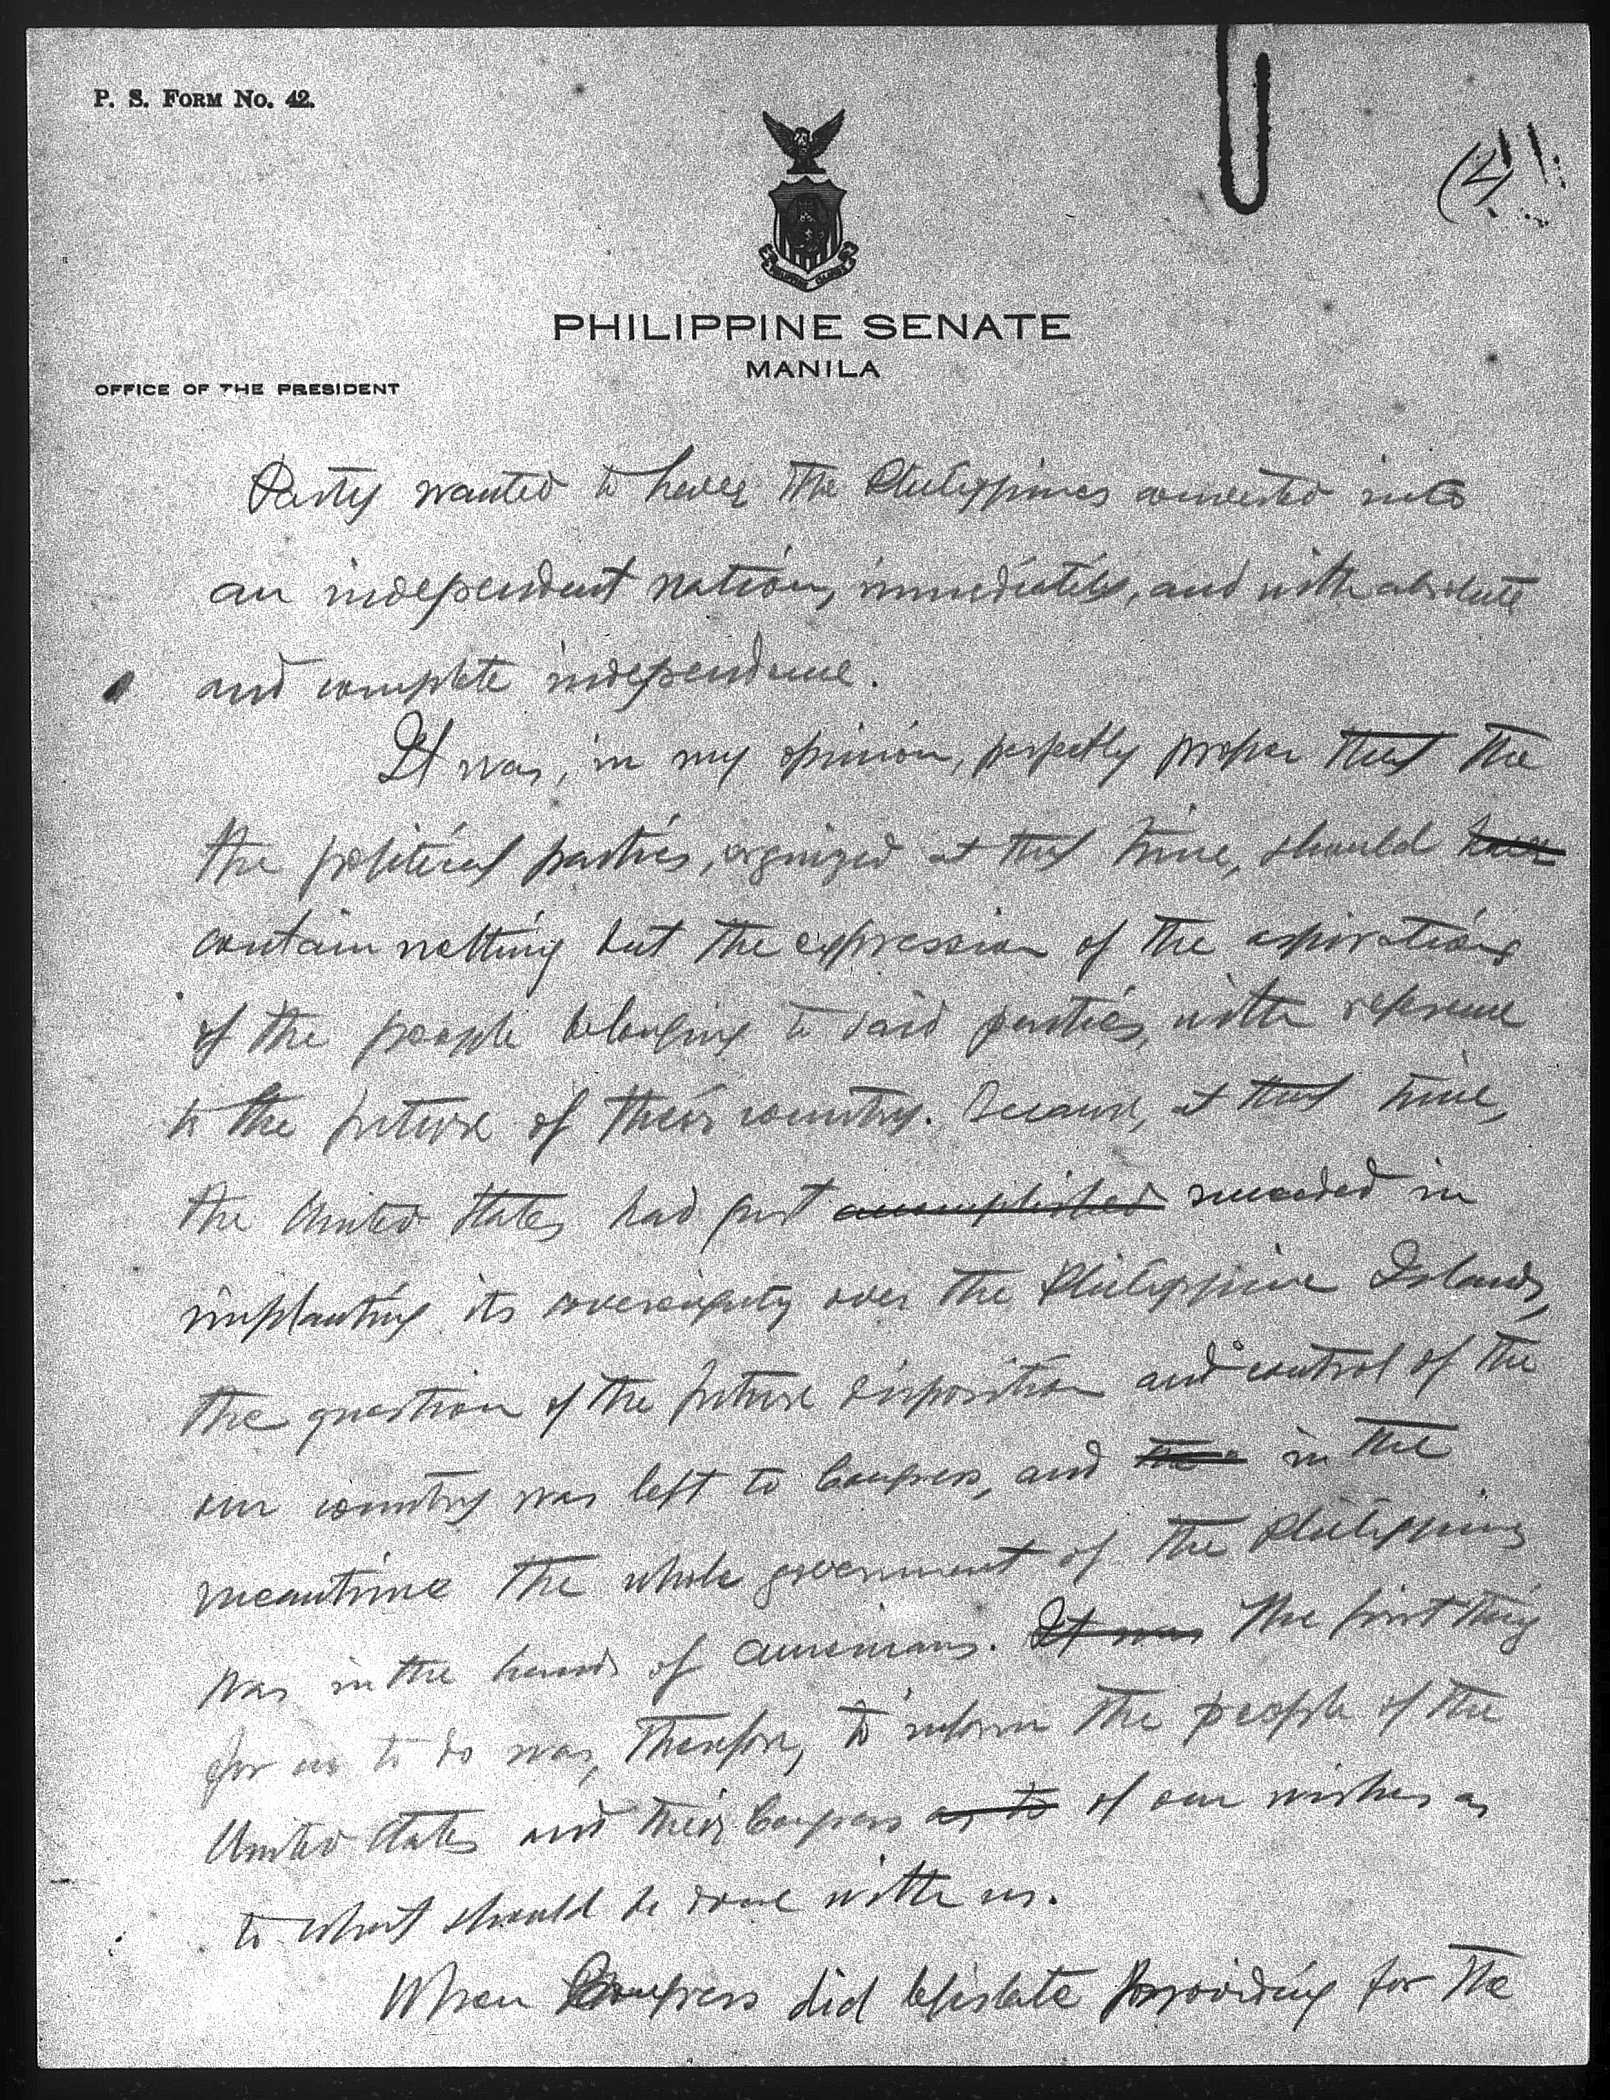 P. S. FORM NO. 42.
(2)
PHILIPPINE SENATE
MANILA
OFFICE OF THE PRESIDENT
Party wanted to have the Philippines converted into
an independent nation, immediately, and with absolute
and complete independence.
It was, in my opinion, perfectly proper that the
the political parties, organized at that time, should have
contain nothing but the expression of the aspirations
of the people belonging to said parties, with reference
to the future of their country. Because, at that time,
the United States had just accomplished succeeded in
implanting its sovereignty over the Philippine Islands,
the question of the future disposition and control of the
our country was left to Congress, and the in the
meantime the whole government of the Philippines
was in the hands of Americans. It was the first thing
for us to do was, therefore, to inform the people of the
United States and their Congress as to of our wishes as
to what should be done with us.
When Congress did legislate providing for the